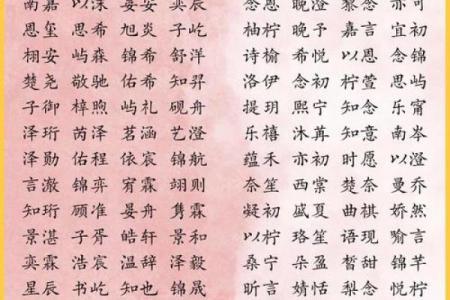 南嘉 以沫 晏安 奕辰 念恩 晚澄 黎念 亦可
思玺 思希 旭炎 子屹 柚柠 晚予 嘉言 宜初
栩安 屿森 锦希 舒洋 诗榆 希悦 以恩 念锦
楚尧 敬驰 佑希 知羿 洛伊 念初 柠萱 思屿
子御 樟煦 屿礼 砚舟 提玥 熙宁 知念 乐甯
泽珩 芮泽 茗涵 艺澄 乐禧 沐苒 知意 南岑
泽勋 佑程 依宸 锦航 蕴禾 亦初 时愿 以澄
言澈 锦弈 宥霖 翊则 奈笙 西棠 楚奈 曼乔
知珩 顾准 晏舟 隽霖 凝初 盛夏 曲棋 娇然
景湛 子胥 皓轩 景和 以柠 珞笙 语现 喻言
奕霖 浩宸 温辞 泽毅 桑宁 朵盈 皙甜 锦芊
星辰 书屹 知也 锦晟 昕言 婧恬 梨念 悦柠